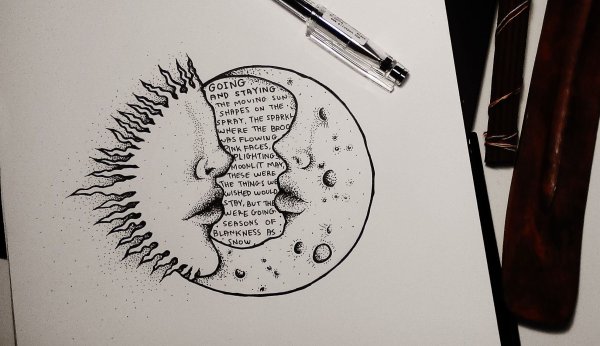 GOING
AND STAYING
THE MOVING SUN
SHAPES ON THE
SPRAY, THE SPARKL
WHERE THE BROO
WAS FLOWING
PINK FACES,
PLIGHTINGS
MOONLIT MAY,
THESE WERE
THE THINGS WE
WISHED WOULD
STAY, BUT THE
WERE GOING
SEASONS OF
BLANKNESS AS
SNOW